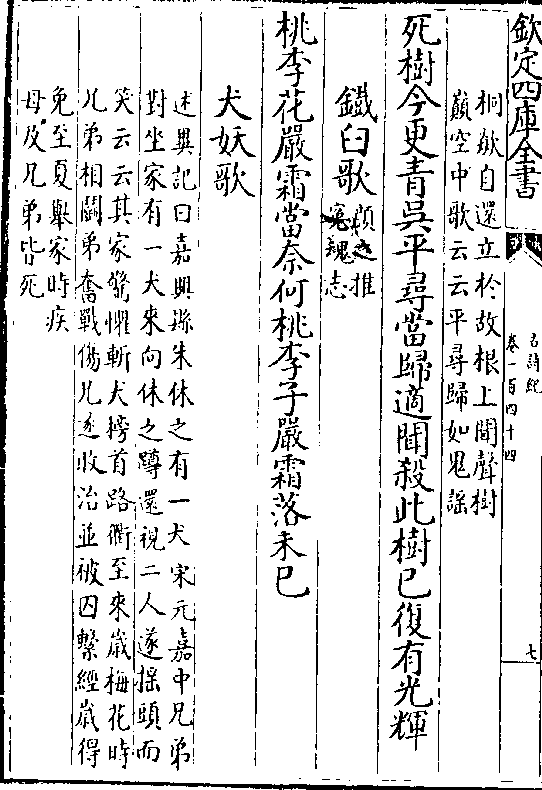 欽定四庫全書
古詩紀
卷一百四十四
七
桐欻自還立於故根上聞聲樹
巔空中歌云云平尋歸如鬼謡
死樹今更青吳平尋當歸適聞殺此樹已復有光輝
鐵臼歌
顔之推
寃魂志
桃李花嚴霜當奈何桃李子嚴霜落未已
犬妖歌
述異記曰嘉興縣朱休之有一犬宋元嘉中兄弟
對坐家有一犬來向休之蹲還視二人遂揺頭而
笑云云其家驚懼斬犬榜首路衢至來歳梅花時
兄弟相鬬弟奮戰傷兄迯收治並被囚繫經歳得
免至夏舉家時疾
母及兄弟皆死